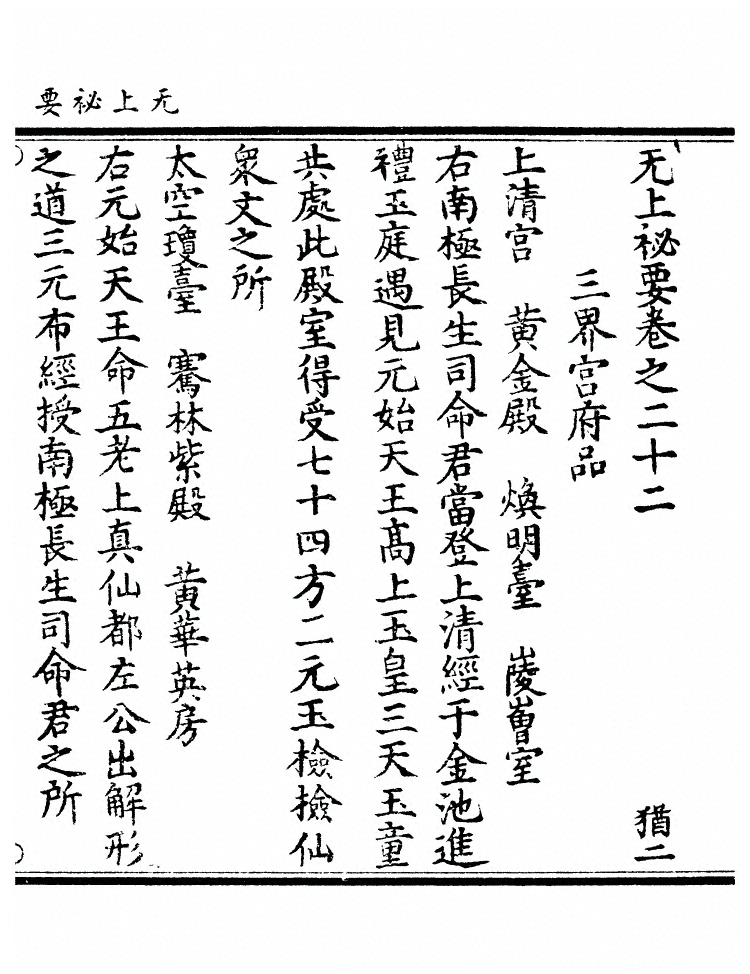 无上祕要
无上祕要卷之二十二　猶二
三界宫府品
上清宫　黄金殿　煥明臺　㥄嶒室
右南極長生司命君當登上清經于金池進
禮玉庭遇見元始天王髙上玉皇三天玉童
共處此殿室得受七十四方二元玉檢撿仙
衆文之所
太空瓊臺　騫林紫殿　黄華英房
右元始天王命五老上真仙都左公出解形
之道三元布經授南極長生司命君之所